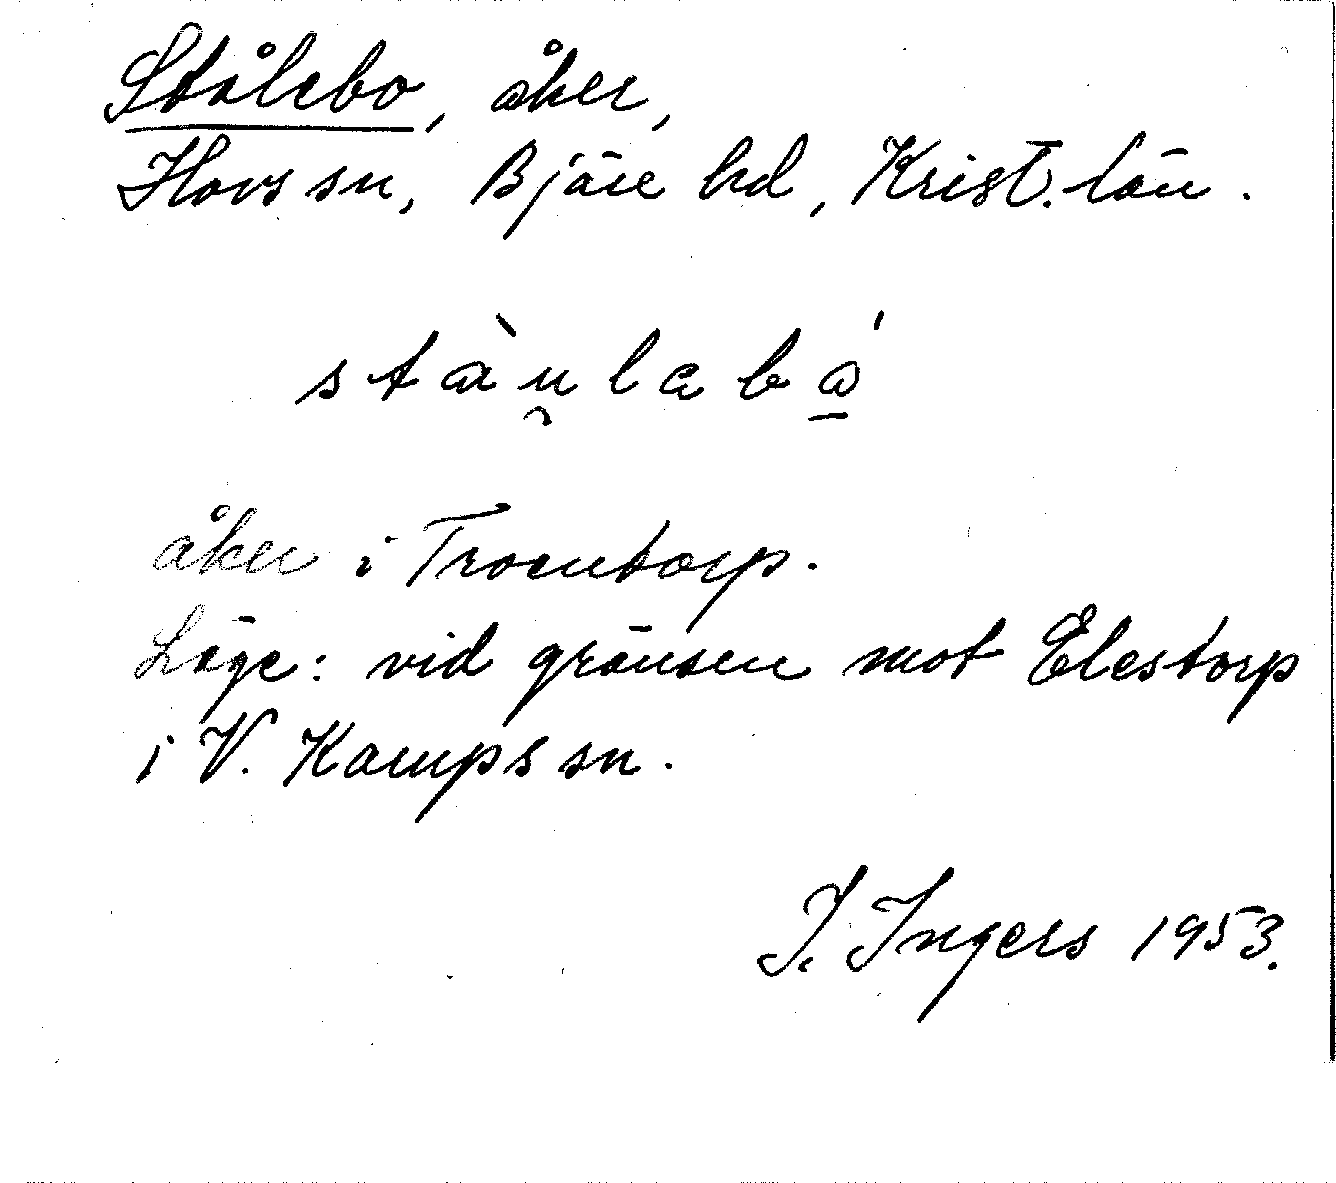 Stålebo, åker,
Hovs sn, Bjäre hd, Krist. län.
åker i Troentorp.
Läge: vid gränsen mot Elestorp
i V. Karups sn.
I. Ingers 1953.